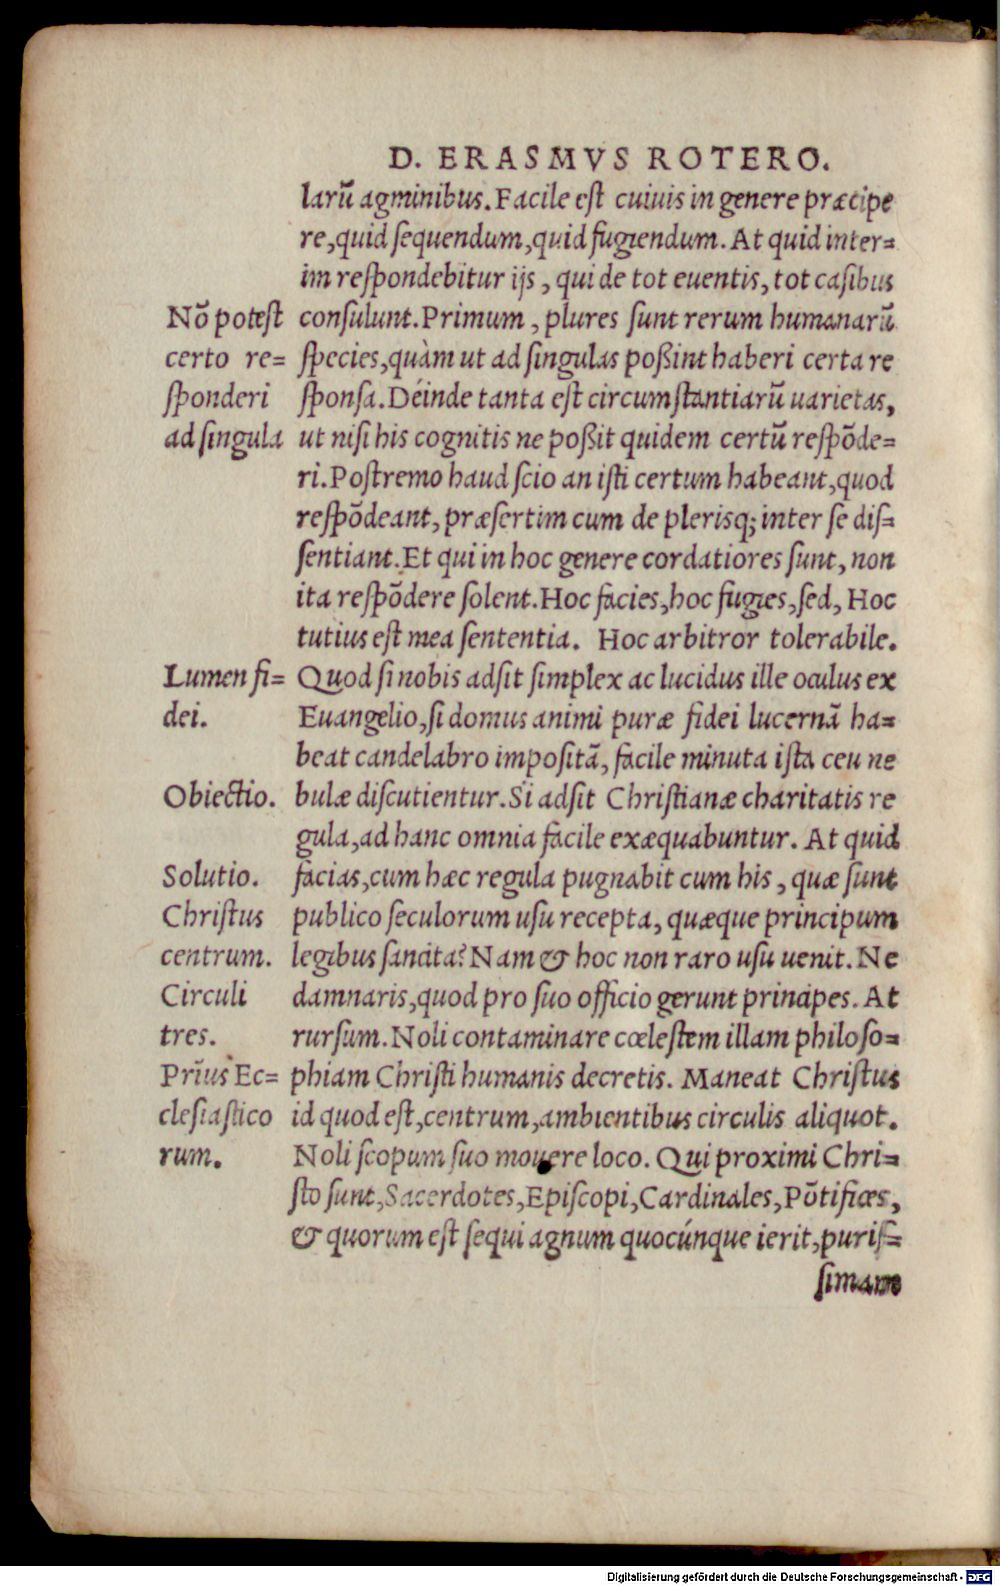 D. ERASMVS ROTERO.
larũ agminibus. Facile est cuiuis in genere præcipe
re, quid sequendum, quid fugiendum. At quid inter=
im respondebitur ijs, qui de tot euentis, tot casibus
consulunt. Primum, plures sunt rerum humanarũ
species, quàm ut ad singulas poßint haberi certa re
sponsa. Déinde tanta est circumstantiarũ uarietas,
ut nisi his cognitis ne poßit quidem certũ respõde=
ri. Postremo haud scio an isti certum habeant, quod
respõdeant, præsertim cum de plerisq; inter se dis=
sentiant. Et qui in hoc genere cordatiores sunt, non
ita respõdere solent. Hoc facies, hoc fugies, sed, Hoc
tutius est mea sententia. Hoc arbitror tolerabile.
Quod si nobis adsit simplex ac lucidus ille oculus ex
Euangelio, si domus animi puræ fidei lucernã ha=
beat candelabro impositã, facile minuta ista ceu ne
bulæ discutientur. Si adsit Christianæ charitatis re
gula, ad hanc omnia facile exæquabuntur. At quid
facias, cum hæc regula pugnabit cum his, quæ sunt
publico seculorum usu recepta, quæque principum
legibus sancita? Nam & hoc non raro usu uenit. Ne
damnaris, quod pro suo officio gerunt principes. At
rursum. Noli contaminare cœlestem illam philoso=
phiam Christi humanis decretis. Maneat Christus
id quod est, centrum, ambientibus circulis aliquot.
Noli scopum suo mouere loco. Qui proximi Chri=
sto sunt, Sacerdotes, Episcopi, Cardinales, Põtifices,
& quorum est sequi agnum quocúnque ierit, puris=
simam
Nõ potest
certo re=
sponderi
ad singula
Lumen fi=
dei.
Obiectio.
Solutio.
Christus
centrum.
Circuli
tres.
Pr̃ius Ec=
clesiastico
rum.
Digitalisierung gefördert durch die Deutsche Forschungsgemeinschaft - DFG